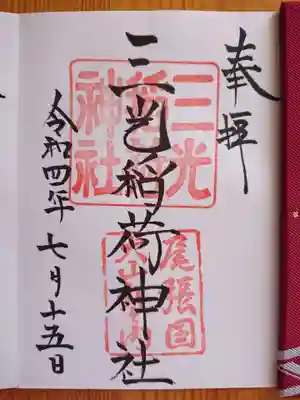 奉拝
三光稲荷神社
三光稲荷神社
尾張国犬山城内
令和四年七月十五日